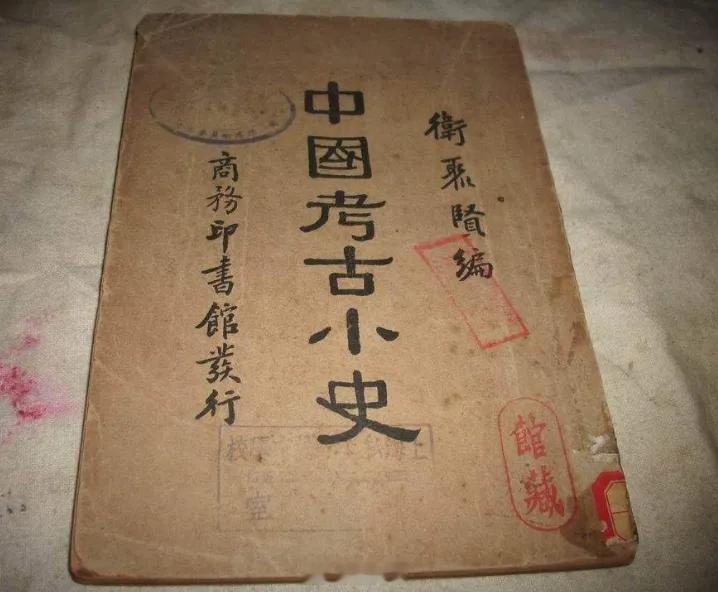 衛聚賢編
中國考古小史
商務印書館發行
館藏